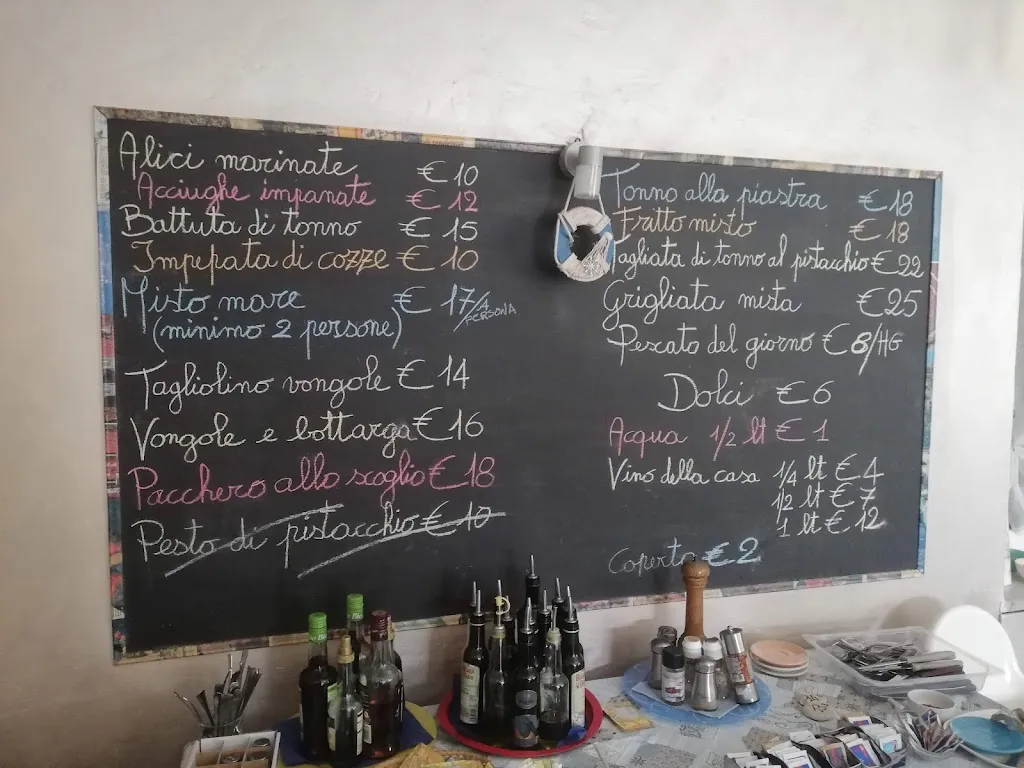 Alici marinate € 10
Acciughe impanate € 12
Battuta di tonno € 15
Impepata di cozze € 10
Misto mare € 17/A PERSONA
(minimo 2 persone)
Tagliolino vongole € 14
Vongole e bottarga € 16
Pacchero allo scoglio € 18
Pesto di pistacchio € 10
Tonno alla piastra € 18
Fritto misto € 18
Tagliata di tonno al pistacchio € 22
Grigliata mista € 25
Pescato del giorno € 8/HG
Dolci € 6
Acqua 1/2 lt € 1
Vino della casa 1/4 lt € 4
1/2 lt € 7
1 lt € 12
Coperto € 2